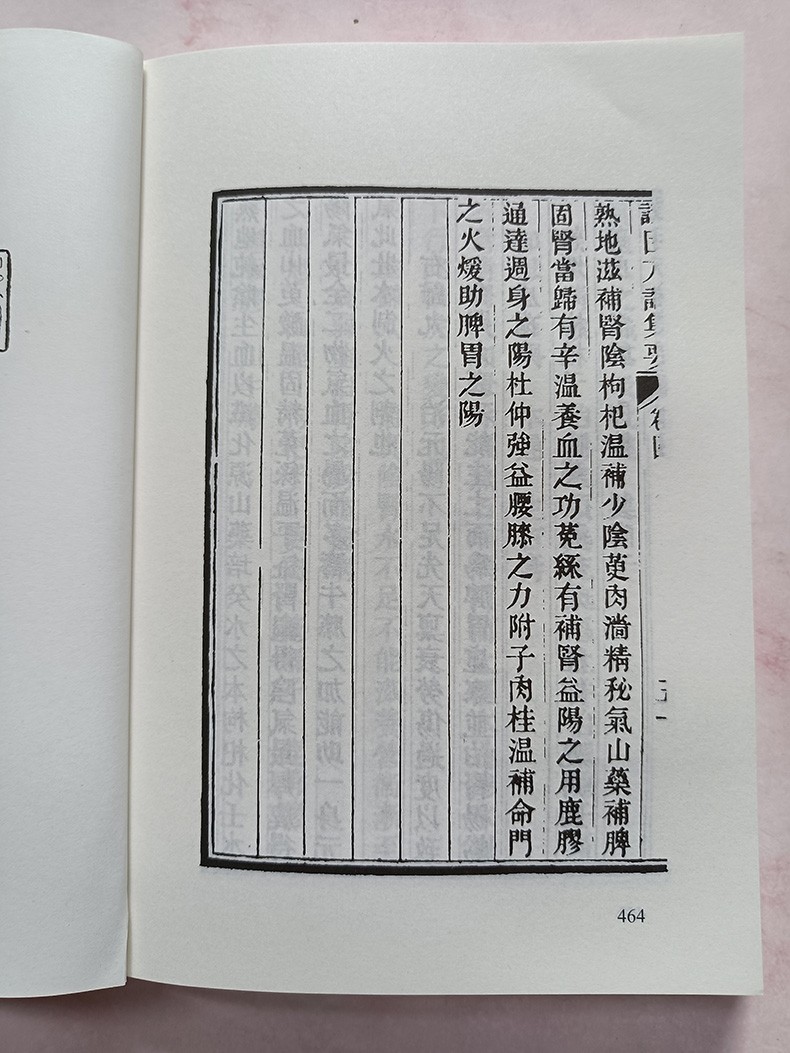 熟地滋補腎陰枸杞温補少陰萸肉濇精秘氣山藥補脾
固腎當歸有辛温養血之功菟絲有補腎益陽之用鹿膠
通達週身之陽杜仲強益腰膝之力附子肉桂温補命門
之火煖助脾胃之陽
464